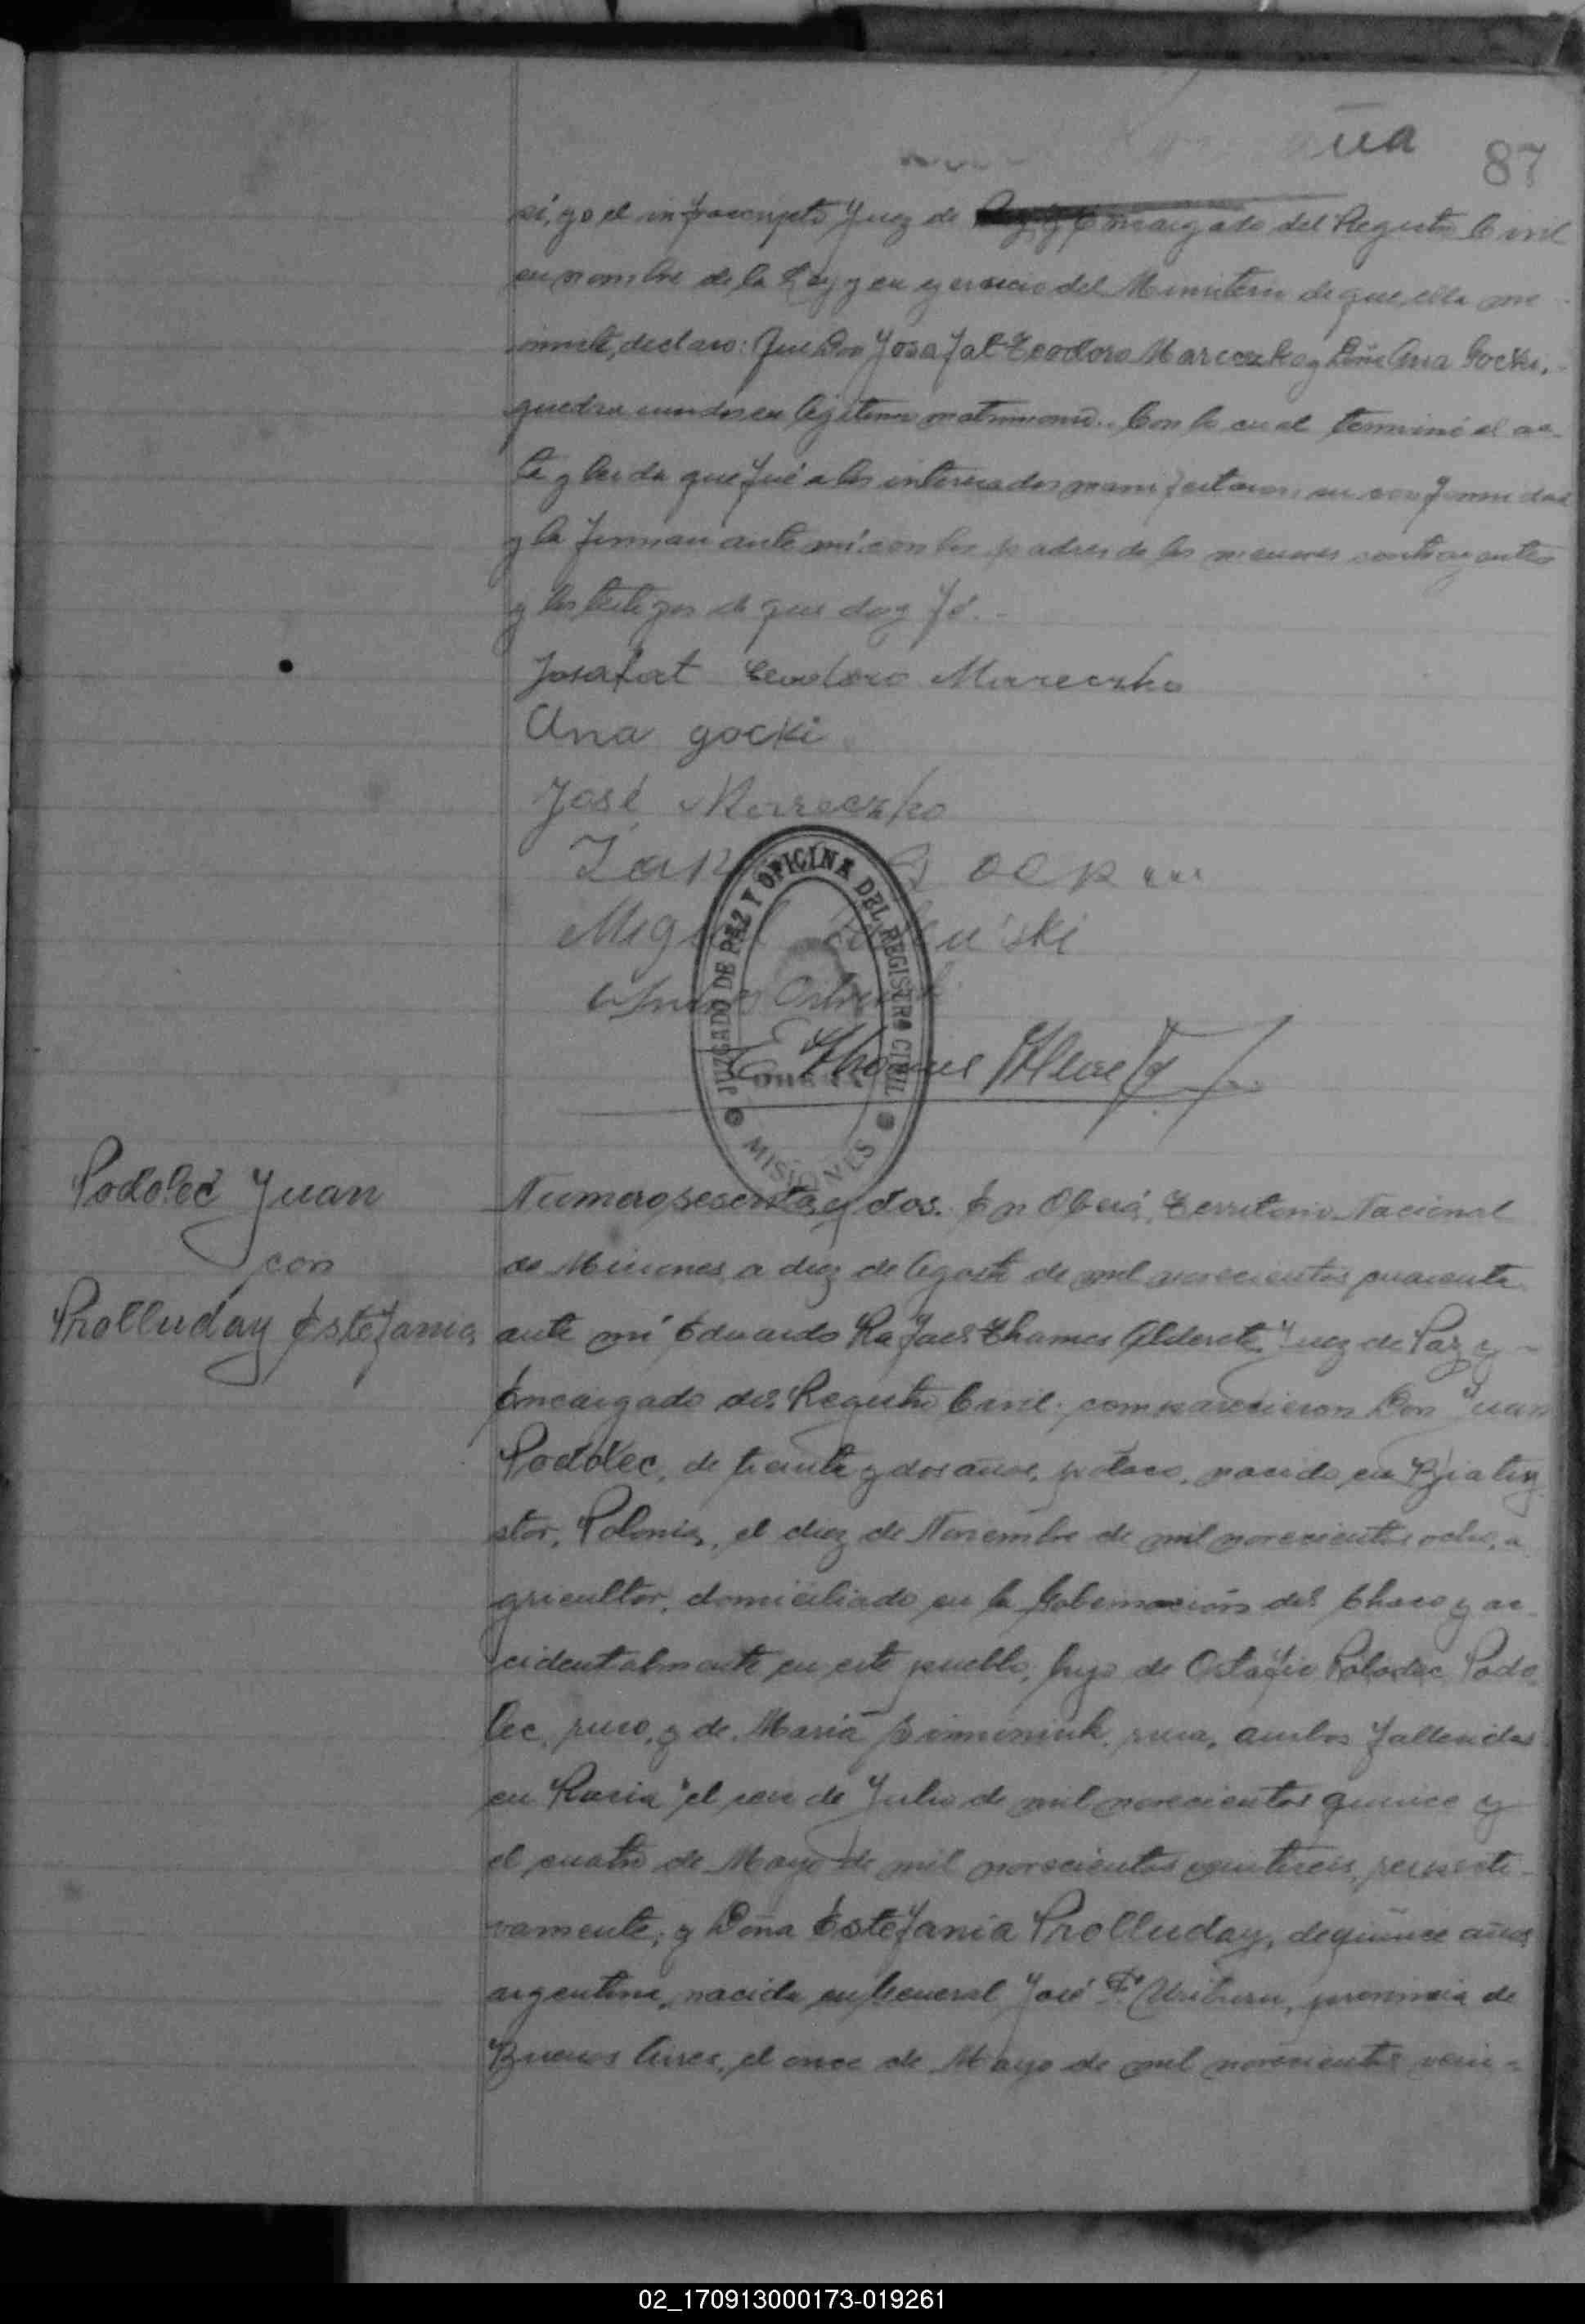 87
sí, yo el infrascripto Juez de Paz y Encargado del Registro Civil
en nombre de la Ley y en ejercicio del Ministerio de que ella me
inviste, declaro: Que Don Josafat Teodoro Mareczko y Doña Ana Gocki,
quedan unidos en legitimo matrimonio. Con lo cual terminó el ac-
ta y leida que fué a los interesados manifestaron su conformidad
y la firman ante mí con los padres de los menores contrayentes
y los testigos de que doy fé.-
Josafat Teodoro Mareczko
Ana gocki
José Mareczko
Miguel
JUZGADO DE PAZ Y OFICINA DEL REGISTRO CIVIL
MISIONES
E. Thames Alderete
Podolec Juan
con
Prolluday Estefania
Numero sesenta y dos. En Oberá, Territorio Nacional
de Misiones, a diez de Agosto de mil novecientos cuarenta
ante mí Eduardo Rafael Thames Alderete, Juez de Paz y
Encargado del Registro Civil: comparecieron Don Juan
Podolec, de treinta y dos años, polaco, nacido en
Polonia, el diez de Noviembre de mil novecientos ocho, a
gricultor, domiciliado en la Gobernación del Chaco y ac-
cidentalmente en este pueblo, hijo de Ostafie Polodec Podo
lec, ruso, y de Maria rusa, ambos fallecidos
en Rusia el seis de Julio de mil novecientos quince y
el cuatro de Mayo de mil novecientos veintiseis, respecti-
vamente; y Doña Estefania Prolluday, de quince años
argentina, nacida en General José F. Uriburu, provincia de
Buenos Aires, el once de Mayo de mil novecientos vein-
02_170913000173-019261